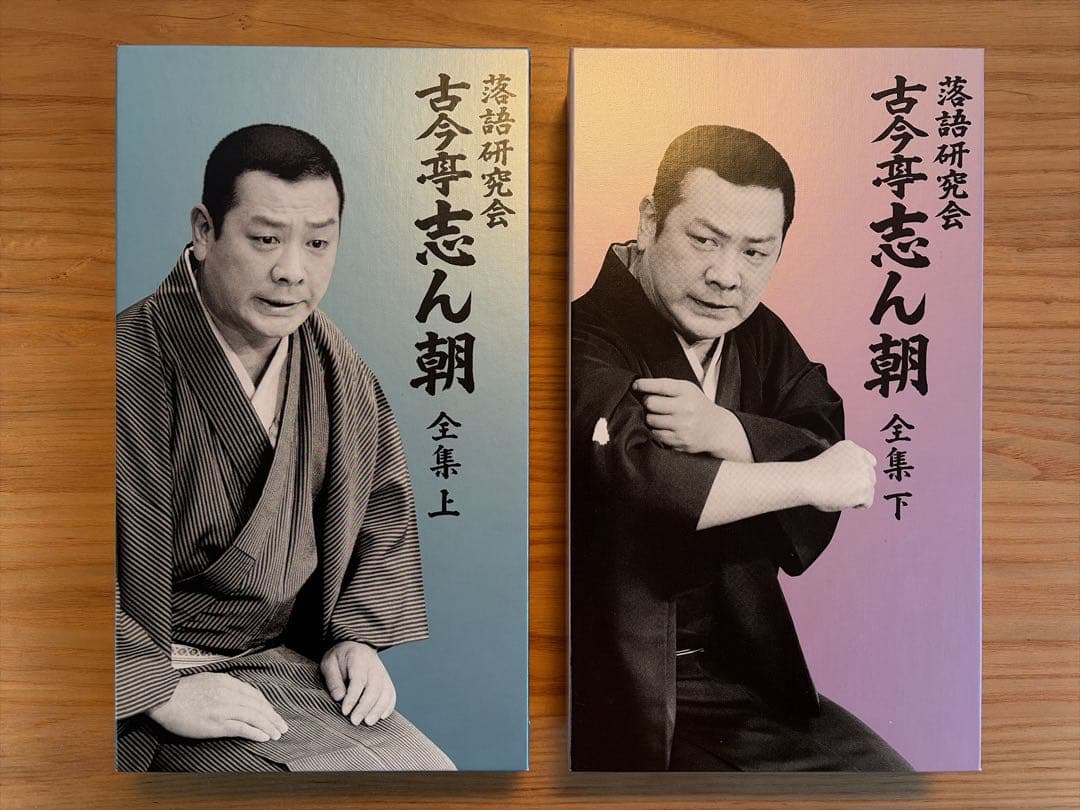 落語研究会
古今亭志ん朝 全集 上
落語研究会
古今亭志ん朝 全集 下